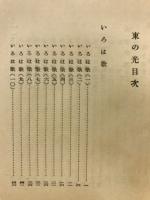 東の光目次
いろは歌
いろは歌(一)
いろは歌(二)
いろは歌(三)
いろは歌(四)
いろは歌(五)
いろは歌(六)
いろは歌(七)
いろは歌(八)
いろは歌(九)
いろは歌(一〇)